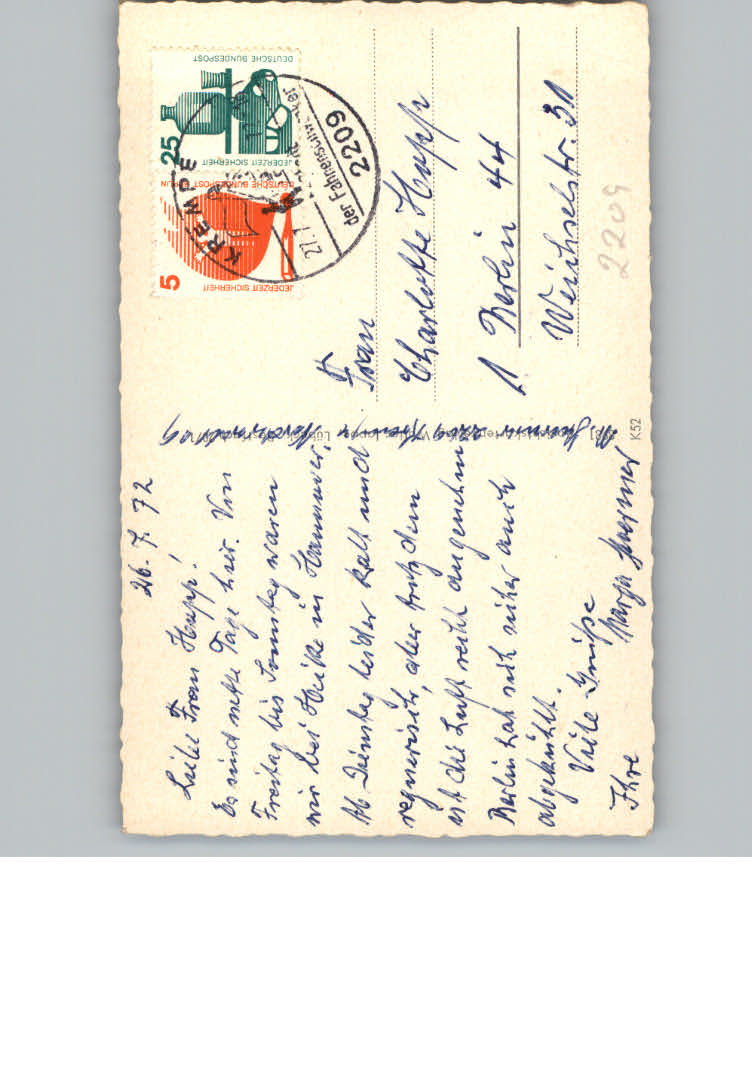 26.7.72
Liebe Frau Hupp!
Es sind nette Tage hier. Von
Freitag bis Sonntag waren
wir bei Heike in Hannover.
Ab Dienstag leider kalt und
regnerisch, aber trotzdem
ist die Luft recht angenehm
Berlin hat sich sicher auch
abgekühlt.
Viele Grüße
Ihre
2209
Frau
Charlotte Hupp
1 Berlin 44
Weichselstr. 31
2209
K52
DEUTSCHE BUNDESPOST
25
JEDERZEIT SICHERHEIT
DEUTSCHE BUNDESPOST BERLIN
5
JEDERZEIT SICHERHEIT
KREMPE
27.7
der Fahrensth
2209